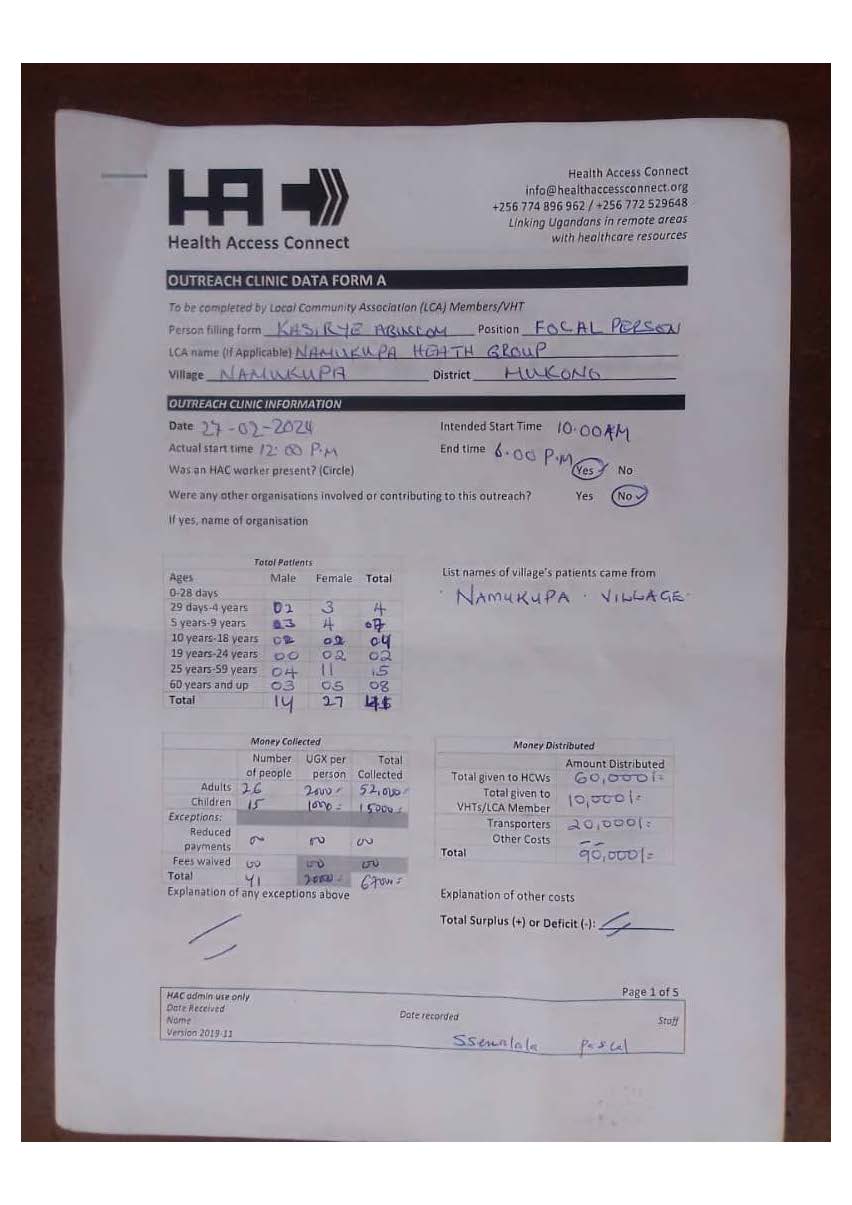 HA
Health Access Connect
Health Access Connect
info@healthaccessconnect.org
+256 774 896 962 / +256 772 529648
Linking Ugandans in remote areas
with healthcare resources
OUTREACH CLINIC DATA FORM A
To be completed by Local Community Association (LCA) Members/VHT
Person filling form KASIRYE Position FOCAL PERSON
LCA name (If Applicable) NAMUKUPA HEATH GROUP
Village NAMUKUPA District MUKONO
OUTREACH CLINIC INFORMATION
Date 27-02-2024 Intended Start Time 10.00AM
Actual start time 12:00 P.M End time 6.00 P.M
Was an HAC worker present? (Circle) Yes No
Were any other organisations involved or contributing to this outreach? Yes No
If yes, name of organisation
Total Patients
Ages Male Female Total
0-28 days
29 days-4 years 02 3 4
5 years-9 years 03 4 07
10 years-18 years 02 02 04
19 years-24 years 00 02 02
25 years-59 years 04 11 15
60 years and up 03 05 08
Total 14 27
List names of village's patients came from
NAMUKUPA . VILLAGE.
Money Collected
Number of people UGX per person Total Collected
Adults 26 2000= 52,000=
Children 15 1000= 15000=
Exceptions:
Reduced payments 00 00 00
Fees waived 00 00 00
Total 41 2000= 67000=
Explanation of any exceptions above
Money Distributed
Amount Distributed
Total given to HCWs 60,000/=
Total given to VHTs/LCA Member 10,000/=
Transporters 20,000/=
Other Costs --
Total 90,000/=
Explanation of other costs
Total Surplus (+) or Deficit (-):
Page 1 of 5
HAC admin use only
Date Received Date recorded Staff
Name
Version 2019-11
Pascal